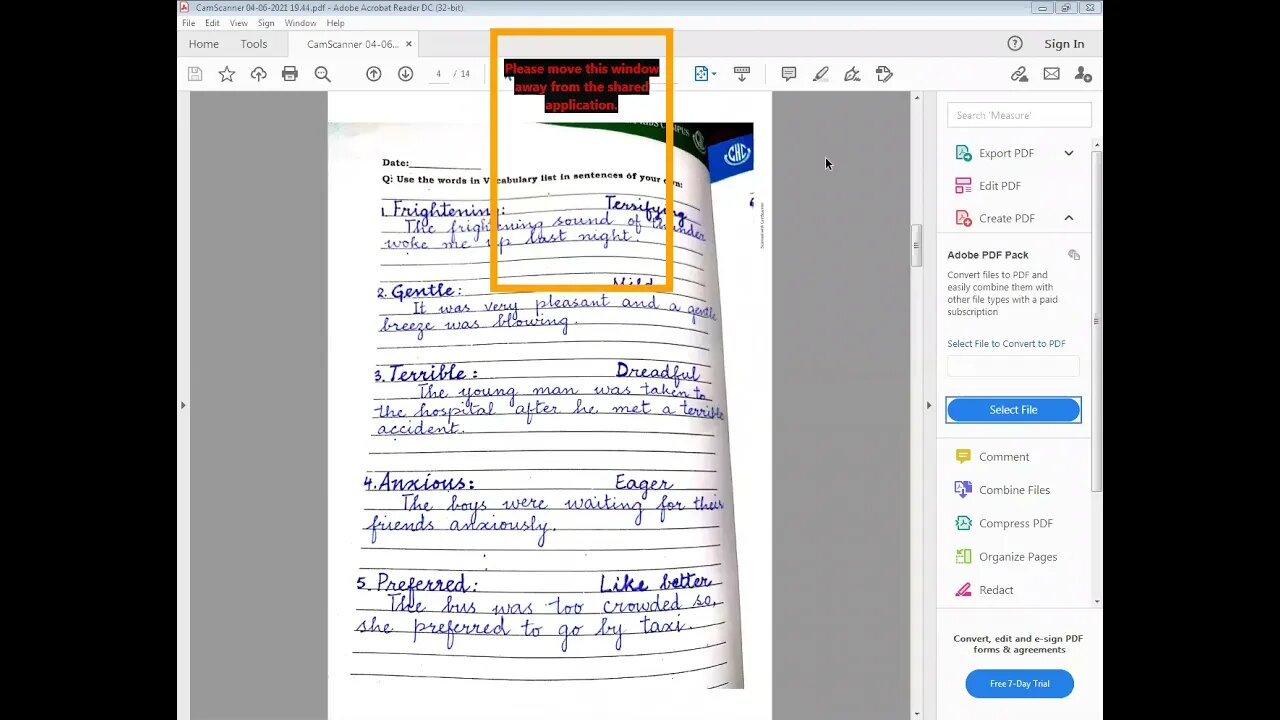 CamScanner 04-06-2021 19.44.pdf - Adobe Acrobat Reader DC (32-bit)
File Edit View Sign Window Help
Home Tools CamScanner 04-06... × Sign In
4 / 14
Please move this window
away from the shared
application.
Search 'Measure'
Export PDF
Edit PDF
Create PDF
Adobe PDF Pack
Convert files to PDF and
easily combine them with
other file types with a paid
subscription
Select File to Convert to PDF
Select File
Comment
Combine Files
Compress PDF
Organize Pages
Redact
Convert, edit and e-sign PDF
forms & agreements
Free 7-Day Trial
CAMPUS
CHC
Date:
Q: Use the words in Vocabulary list in sentences of your own:
1. Frightening: Terrifying
The frightening sound of thunder
woke me up last night.
2. Gentle: Mild
It was very pleasant and a gentle
breeze was blowing.
3. Terrible: Dreadful
The young man was taken to
the hospital after he met a terrible
accident.
4. Anxious: Eager
The boys were waiting for their
friends anxiously.
5. Preferred: Like better
The bus was too crowded so,
she preferred to go by taxi.
Scanned with CamScanner